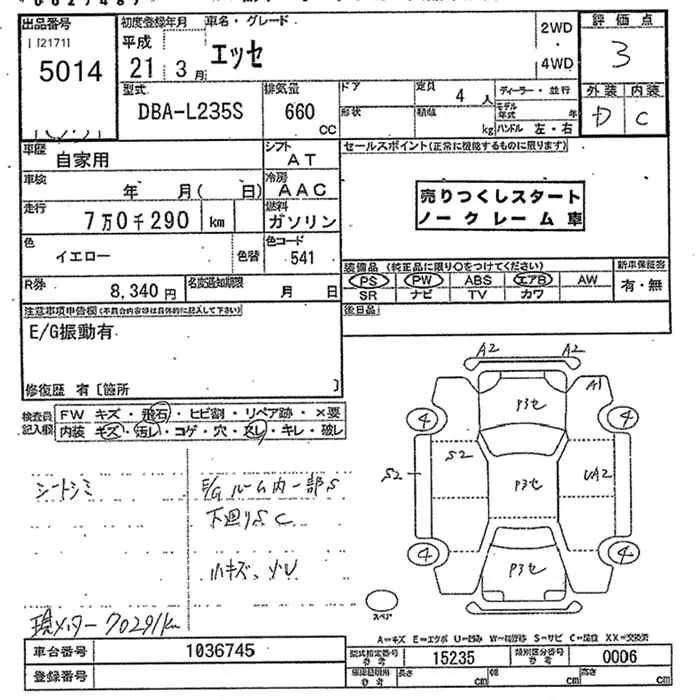 出品番号
[2171]
5014
初度登録年月
平成
21年 3月
車名・グレード
エッセ
2WD
4WD
評価点
3
外装 内装
D C
型式
DBA-L235S
排気量
660 CC
ドア
形状
定員
4 人
積載
kg
ディーラー・並行
モデル年式 年
ハンドル 左・右
車歴
自家用
シフト
AT
車検
年 月( 日)
冷房
AAC
走行
7万0千290 km
燃料
ガソリン
色
イエロー
色替
色コード
541
R券
8,340 円
名変通知期限
月 日
セールスポイント(正常に機能するものに限ります)
売りつくしスタート
ノークレーム車
装備品 (純正品に限り○をつけてください)
PS PW ABS エアB AW
SR ナビ TV カワ
新車保証書
有・無
後日品
注意事項申告欄(不具合内容等は具体的に記入して下さい)
E/G振動有
修復歴 有 [箇所 ]
検査員記入欄
FW キズ・飛石・ヒビ割・リペア跡・×要
内装 キズ・汚レ・コゲ・穴・スレ・キレ・破レ
シートシミ
E/Gルーム内一部S
下廻りS C
小キズ、小U
現メーター70291km
A2 A2
A1
P3セ
4 4
S2
S2
P3セ
UA2
4 4
P3セ
スペア
A=キズ E=エクボ U=凹み W=補修跡 S=サビ C=腐食 X=要交換 XX=交換済
車台番号
1036745
登録番号
型式指定番号
参考
15235
類別区分番号
参考
0006
長さ cm
幅 cm
高さ cm